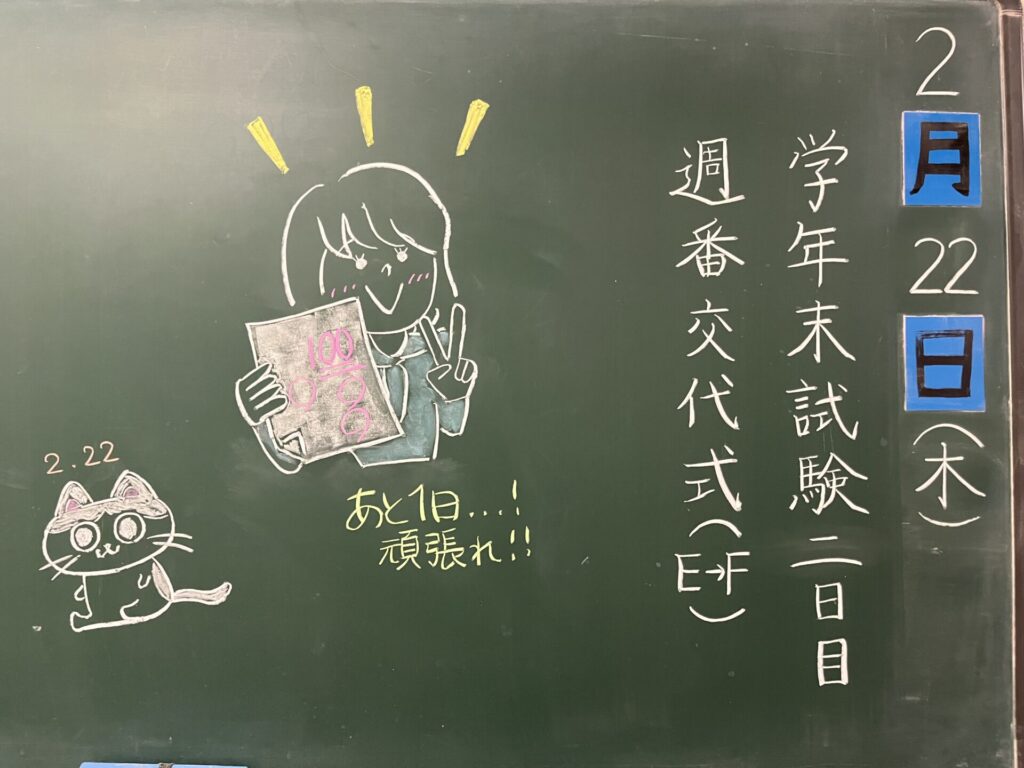 2月22日(木)
学年末試験二日目
週番交代式(E→F)
100
あと1日...!
頑張れ!!
2.22